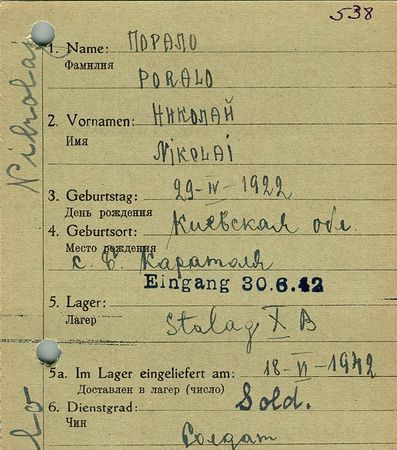 538
1. Name: ПОРАЛО
Фамилия
PORALO
2. Vornamen: НИКОЛАЙ
Имя
NiKOLAi
3. Geburtstag: 29-IV-1922
День рождения
4. Geburtsort: Киевская обл.
Место рождения
с. Б. Каратоля
Eingang 30.6.42
5. Lager: Stalag X B
Лагер
5a. Im Lager eingeliefert am: 18-VI-1942
Доставлен в лагер (число)
6. Dienstgrad: Sold.
Чин
Солдат